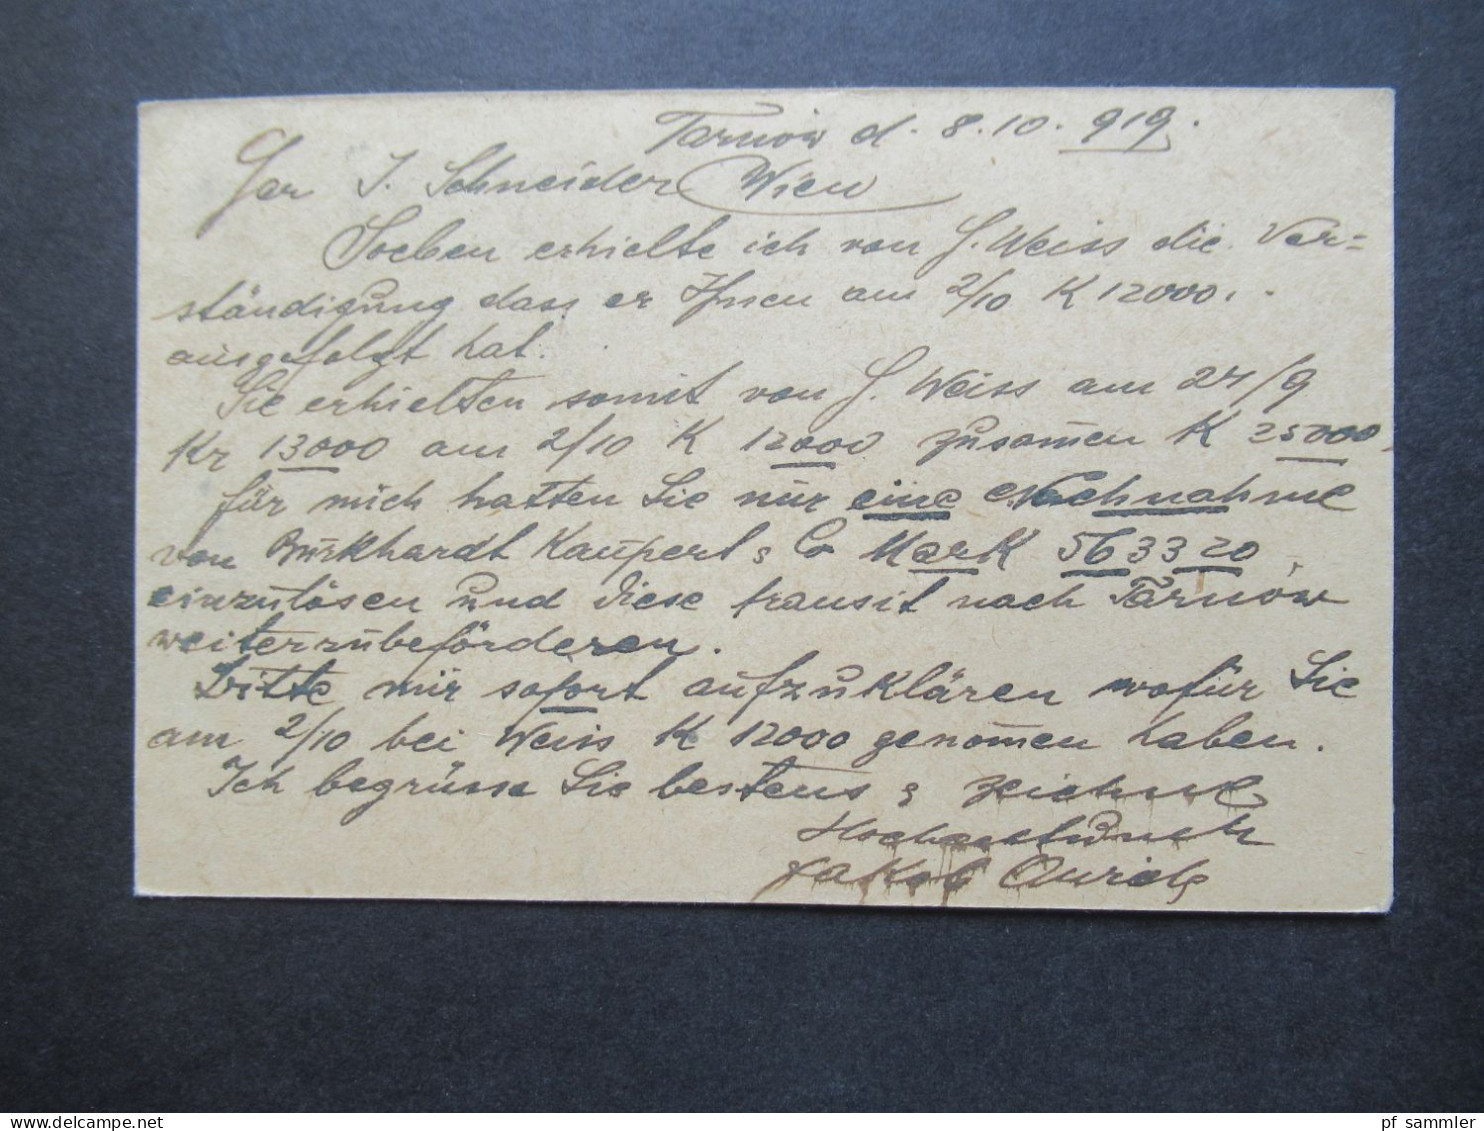 Tarnów d. 8.10. 919.
J. Schneider Wien
Soeben erhielte ich von J. Weiss die Ver=
ständigung dass er Ihnen am 2/10 K 12000..
ausgefolgt hat.
Sie erhielten somit von J. Weiss am 27/9
Kr 13000 am 2/10 K 12000 zusam̄en K 25000
für mich hatten Sie nur eine Nachnahme
von Burkhardt Kaupert & Co Mark 5633 20
einzulösen und diese transit nach Tarnów
weiterzubefördern.
Bitte mir sofort aufzuklären wofür Sie
am 2/10 bei Weiss K 12000 genom̄en haben.
Ich begrüsse Sie bestens & zeichne
Hochachtungsvoll
Jakob
pf sammler
www.delcampe.net